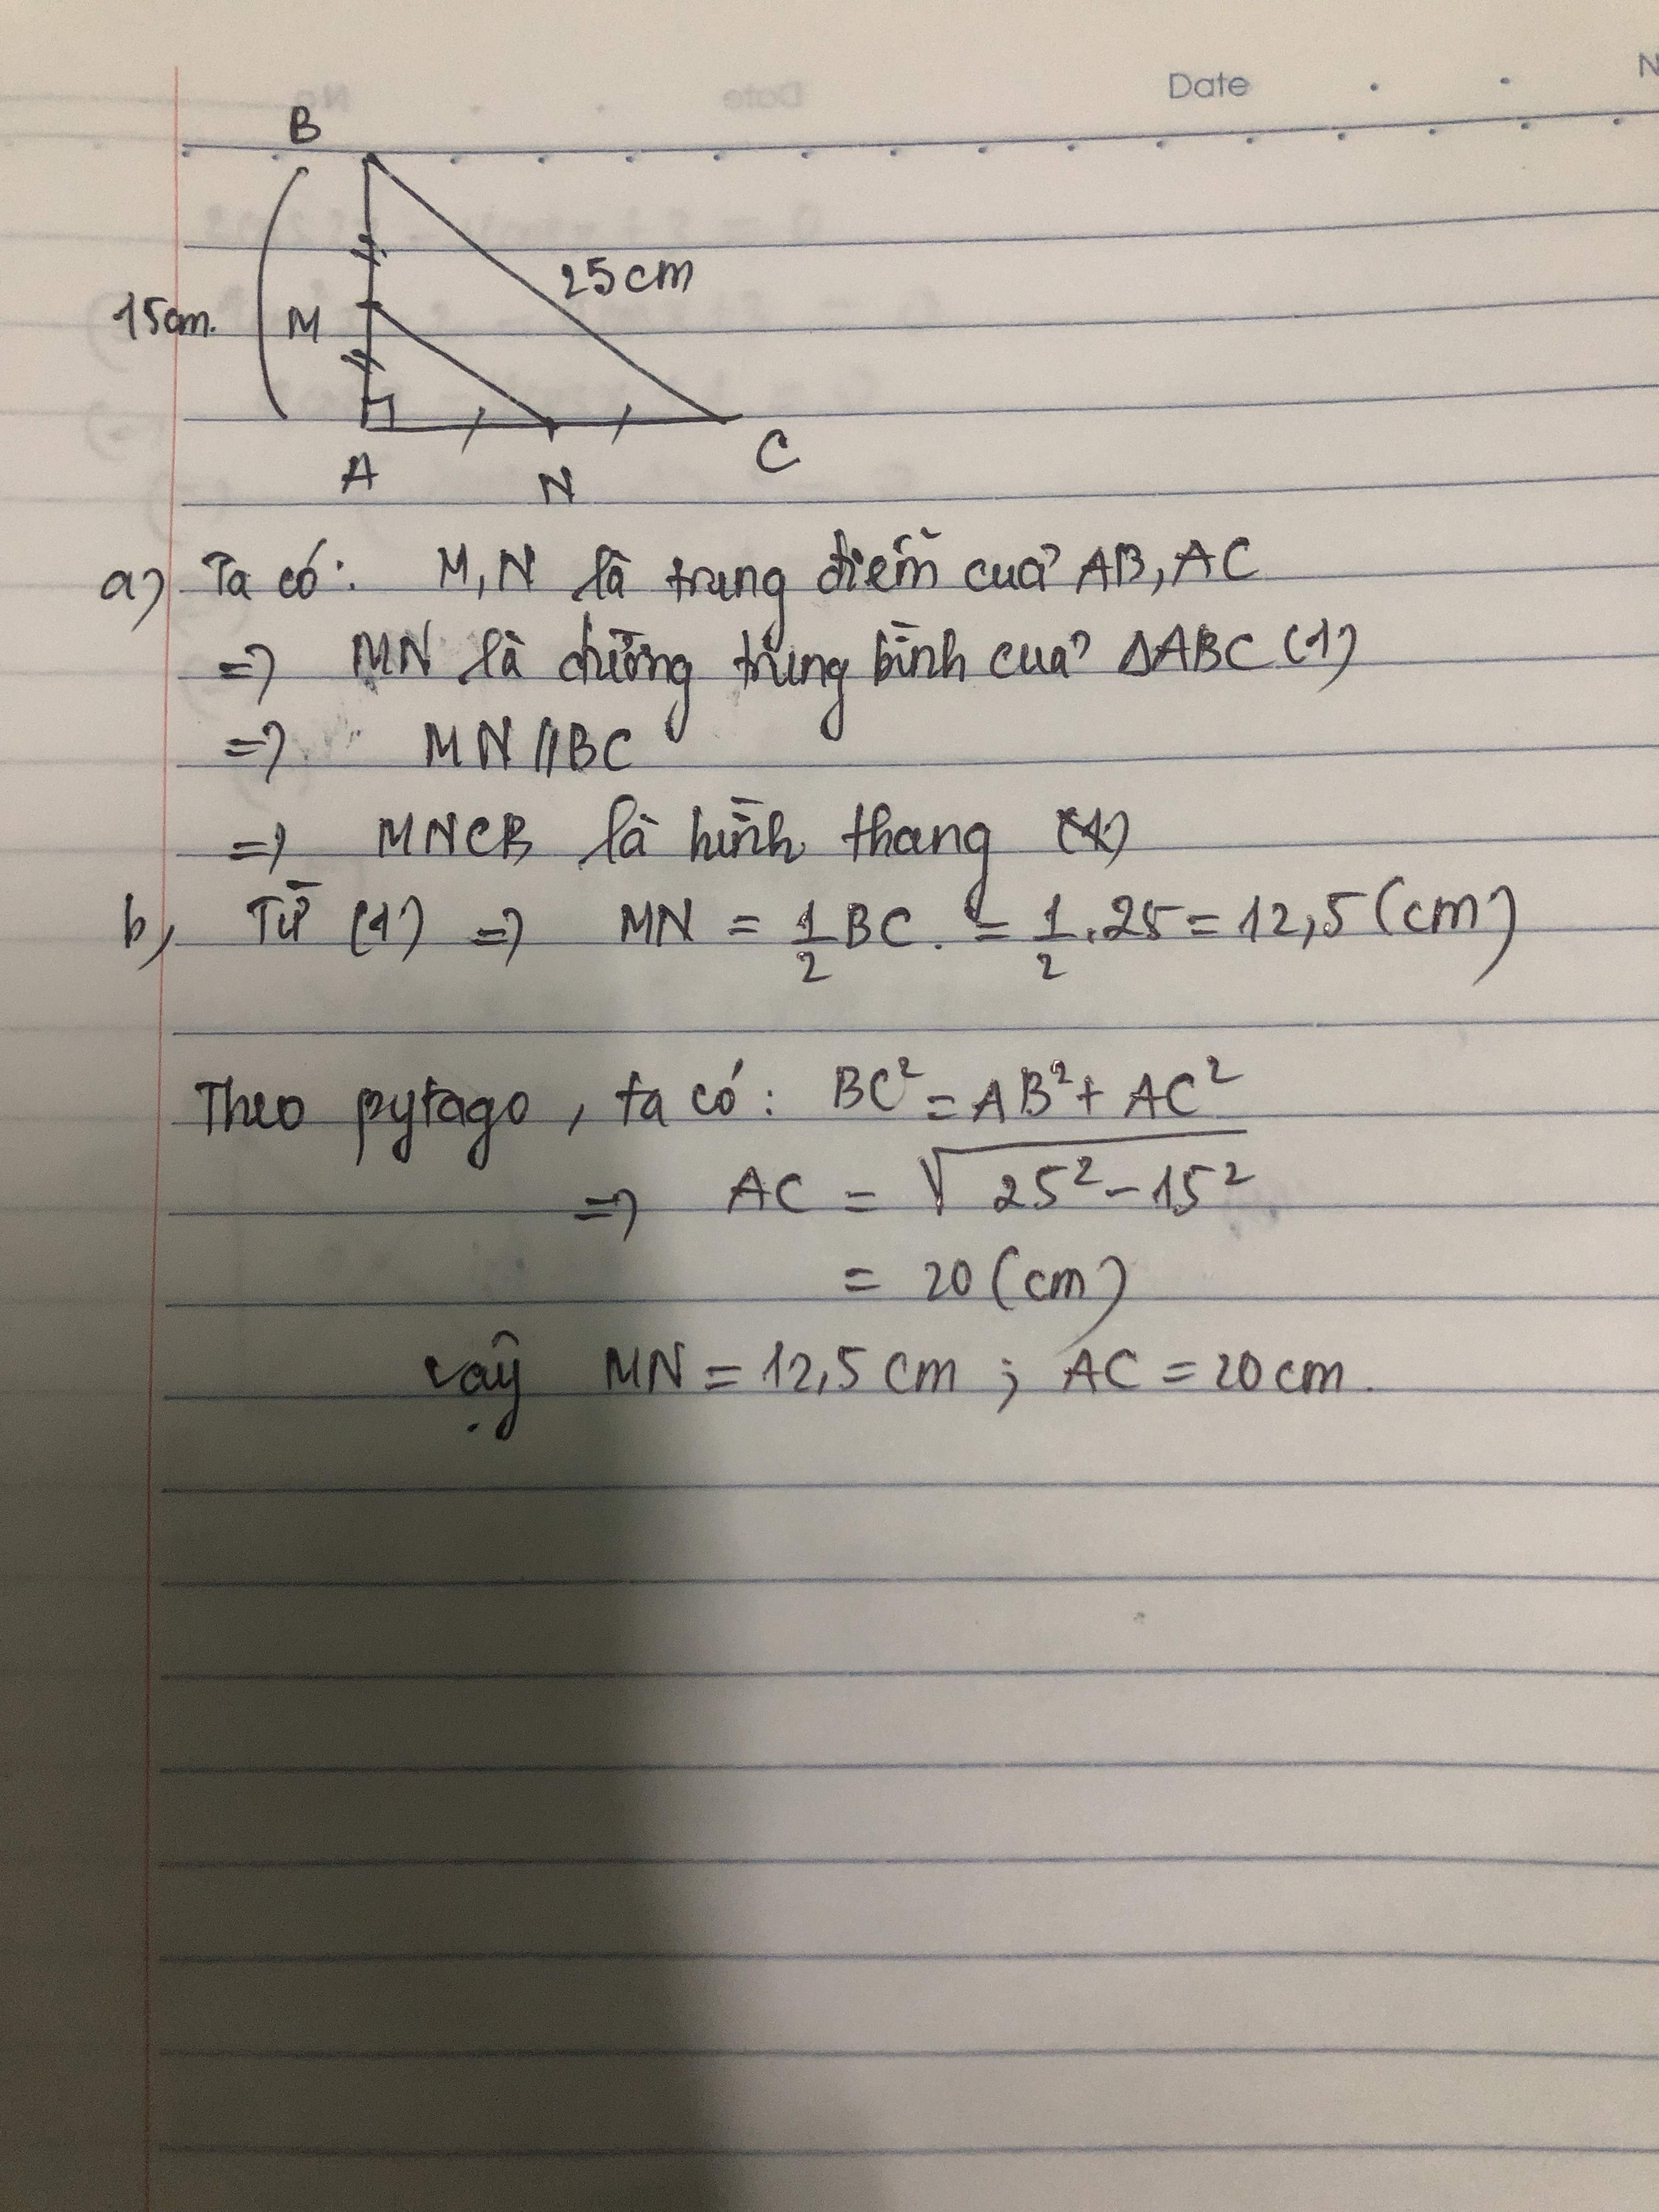 Date
N
B
25cm
15cm.
M
A
N
C
a) Ta có: M, N là trung điểm của AB, AC
=> MN là đường trung bình của ΔABC (1)
=> MN // BC
=> MNCB là hình thang
b, Từ (1) => MN = 1/2 BC. = 1/2 . 25 = 12,5 (cm)
Theo pytago, ta có: BC² = AB² + AC²
=> AC = √25² - 15²
= 20 (cm)
vậy MN = 12,5 cm ; AC = 20 cm.